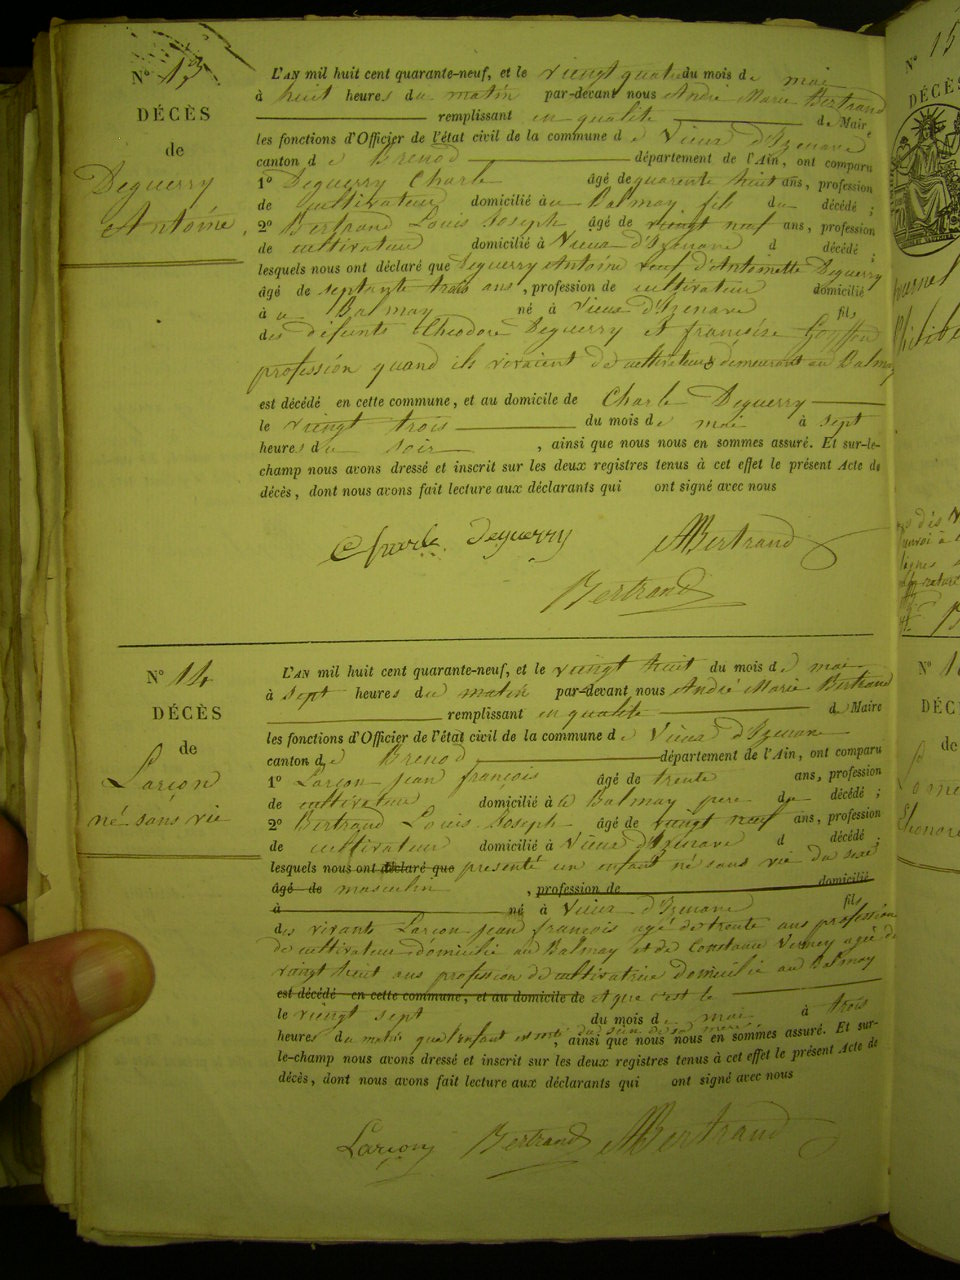 N° 13
DÉCÈS
de
Deguerry
Antoine
L'AN mil huit cent quarante-neuf, et le vingt quatre du mois de mai
à huit heures du matin par-devant nous André Marie Bertrand
remplissant en qualité de Maire
les fonctions d'Officier de l'état civil de la commune de Vieux d'Izenave
canton de Brenod département de l'Ain, ont comparu
1° Deguerry Charle âgé de quarente huit ans, profession
de cultivateur domicilié au Balmay fils du décédé ;
2° Bertrand Louis Joseph âgé de vingt neuf ans, profession
de cultivateur domicilié à Vieux d'Izenave d décédé ;
lesquels nous ont déclaré que Deguerry Antoine veuf d'Antoinette Deguerry
âgé de septante trois ans, profession de cultivateur domicilié
à u Balmay né à Vieux d'Izenave fils
des défunts Théodore Deguerry et françoise Goyffon
profession quand ils vivaient de cultivateurs demeurant au Balmay
est décédé en cette commune, et au domicile de Charle Deguerry
le vingt trois du mois de mai à sept
heures du soir, ainsi que nous nous en sommes assuré. Et sur-le-
champ nous avons dressé et inscrit sur les deux registres tenus à cet effet le présent Acte de
décès, dont nous avons fait lecture aux déclarants qui ont signé avec nous
Charle Deguerry AMBertrand
Bertrand
N° 14
DÉCÈS
de
Larçon
né sans vie
L'AN mil huit cent quarante-neuf, et le vingt huit du mois de mai
à sept heures du matin par-devant nous André Marie Bertrand
remplissant en qualité de Maire
les fonctions d'Officier de l'état civil de la commune de Vieux d'Izenave
canton de Brenod département de l'Ain, ont comparu
1° Larçon jean françois âgé de trente ans, profession
de cultivateur domicilié à Balmay pere du décédé ;
2° Bertrand Louis Joseph âgé de vingt neuf ans, profession
de cultivateur domicilié à Vieux d'Izenave d décédé ;
lesquels nous ont déclaré que presenté un enfant né sans vie du sexe
âgé de masculin, profession de domicilié
à né à Vieux d'Izenave fils
des vivants Larçon jean françois agé de trente ans profession
de cultivateur domicilié au Balmay et de Constance Verney agée de
vingt huit ans profession de cultivatrice domicilié au Balmay
est décédé en cette commune, et au domicile de et que c'est le
le vingt sept du mois de mai à trois
heures du matin que l'enfant est sorti du sein de sa mere, ainsi que nous nous en sommes assuré. Et sur-
le-champ nous avons dressé et inscrit sur les deux registres tenus à cet effet le présent Acte de
décès, dont nous avons fait lecture aux déclarants qui ont signé avec nous
Larçon Bertrand AMBertrand
N° 15
DÉCÈS
N°
de